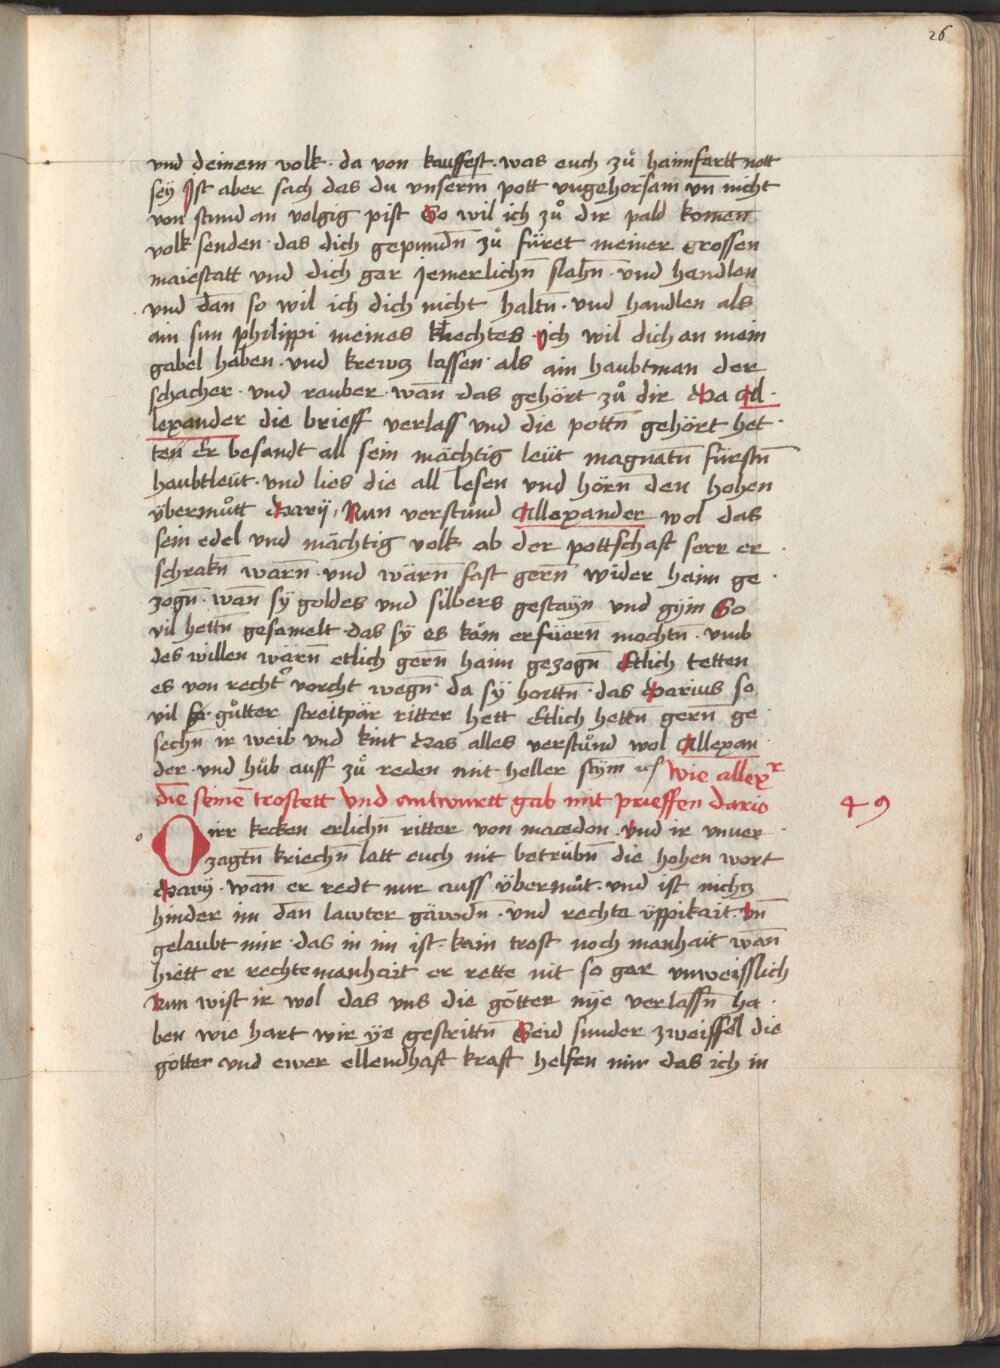 26
vnd deinem volk · da von kauffest · was euch zů haimfartt nott
seÿ Jst aber sach das du vnserm̄ pott vngehorsam vn̄ nicht
von stund an volgig pist So wil ich zů dir pald komen
volk senden · das dich gepundn̄ zů füret meiner grossen
maiestatt vnd dich gar jemerlichn̄ slahn̄ · vnd handlen
vnd dan̄ so wil ich dich nicht haltn̄ · vnd handlen als
ain sun philippi meines knechtes · Ich wil dich an mein
gabel haben · vnd krewcz lassen · als ain haubtman der
schacher · vnd rauber · wan̄ das gehört zů dir Da Al ·
lexander die brieff verlass vnd die pottn̄ gehört het ·
ten Er besandt all sein mächtig leüt magnatn̄ fürstn̄
haubtleüt · vnd lies die all lesen vnd hörn̄ den hohen
übermůtt Darÿ , Nun verstůnd Allexander wol das
sein edel vnd mächtig volk ab der pottschaft serr er ·
schrakn̄ warn̄ · vnd wärn̄ fast gern̄ wider haim ge ·
zogn̄ · wan sÿ goldes vnd silbers gestaÿn vnd gÿm So
vil hettn̄ gesamelt das sÿ es kām erfüern̄ mochtn̄ · vmb
des willen wärn̄ etlich gern̄ haim gezogn̄ Etlich tetten
es von rechtr vorcht wegn̄ · da sÿ horttn̄ · das Darius so
vil gůtter streitpär ritter hett Etlich hettn gern̄ ge ·
sechn̄ ir weib vnd kint Das alles verstůnd wol Allexan
der · vnd hůb auff zů reden mit heller stÿm Wie allexr
die seinē trostett vnd antwurtt gab mit prieffen dario
49
O irr kecken erlichn̄ ritter von macedon · vnd ir vnuer ·
zagtn̄ kriechn̄ latt euch nit betrübn̄ die hohen wort
Darÿ · wan̄ er redt nur auss übermůt · vnd ist nichcz
hinder im dan̄ lawter gäwdn̄ · vnd rechte üppikait · vn̄
gelaubt mir · das in im ist · kain trost noch manhait wan̄
hiett er rechte manhait er rette nit so gar vnweisslich
Nun wist ir wol das vns die götter nÿe verlassn̄ ha ·
ben wie hart wir ÿe gestrittn̄ Seid sunder zweiffel die
götter vnd ewer ellendhaft kraft helfen mir das ich in